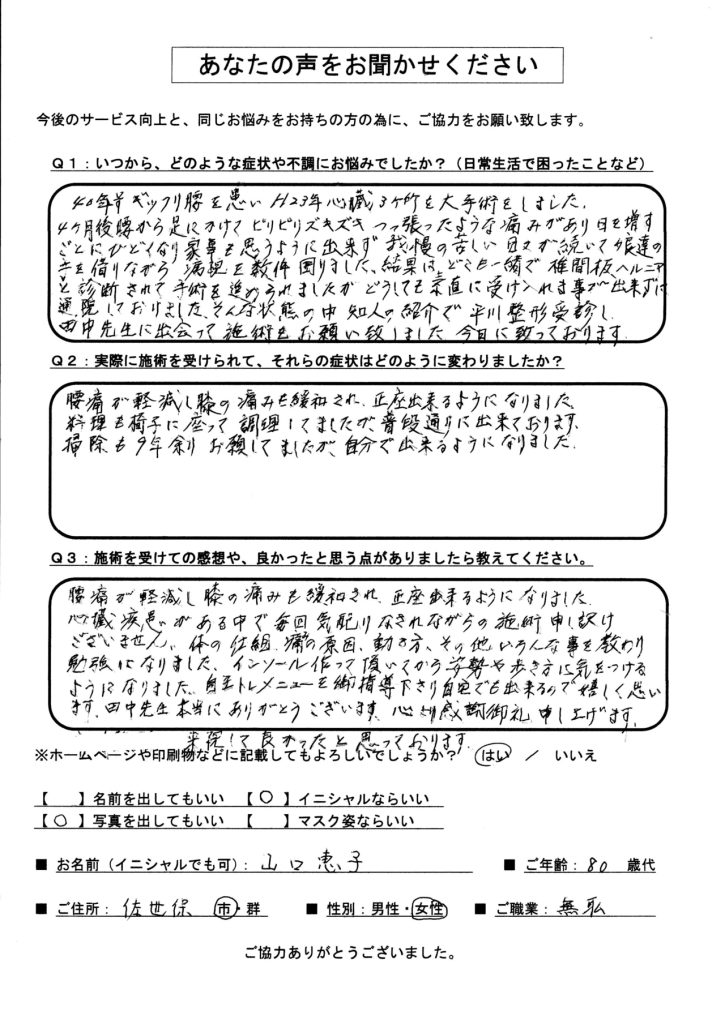 あなたの声をお聞かせください
今後のサービス向上と、同じお悩みをお持ちの方の為に、ご協力をお願い致します。
Q1：いつから、どのような症状や不調にお悩みでしたか？（日常生活で困ったことなど）
40年前ギックリ腰を患い H23年心臓3ヶ所を大手術をしました。
4ヶ月後腰から足にかけて ビリビリズキズキ つっ張ったような痛みがあり日を増す
ごとにひどくなり家事も思うように出来ず 我慢の苦しい日々が続いて娘達の
手を借りながら 病理を数件 困りました、結果は、どこも一緒で 椎間板ヘルニア
と診断されて手術を進められましたが どうしても素直に受け入れます事が出来ずに
通院しておりました、そんな状態の中 知人の紹介で 平川整形受診し、
田中先生に出会って 施術をお願い致しました 今日に致っております。
Q2：実際に施術を受けられて、それらの症状はどのように変わりましたか？
腰痛が軽減し膝の痛みも緩和され、正座出来るようになりました。
料理も椅子に座って 調理してましたが、普段通りに出来ております。
掃除も9年余り お願してましたが、自分で出来るようになりました。
Q3：施術を受けての感想や、良かったと思う点がありましたら教えてください。
腰痛が軽減し膝の痛みも緩和され、正座出来るようになりました。
心臓疾患がある中で毎回気配りなされながらの施術 申し訳け
ございません、体の仕組、痛の原因、動き方、その他いろんな事を教わり
勉強になりました、インソール作って頂いてから姿勢や歩き方に気をつける
ようになりました、自主トレメニューを御指導下さり自宅でも出来るので嬉しく思い
ます、田中先生本当にありがとうございます、心より感謝御礼 申し上げます。
来院して良かったと思っております。
※ホームページや印刷物などに記載してもよろしいでしょうか？ はい ／ いいえ
【　】名前を出してもいい 【○】イニシャルならいい
【○】写真を出してもいい 【　】マスク姿ならいい
■ お名前（イニシャルでも可）：山口 恵子 ■ ご年齢：80 歳代
■ ご住所：佐世保 市・群 ■ 性別：男性・女性 ■ ご職業：無私
ご協力ありがとうございました。